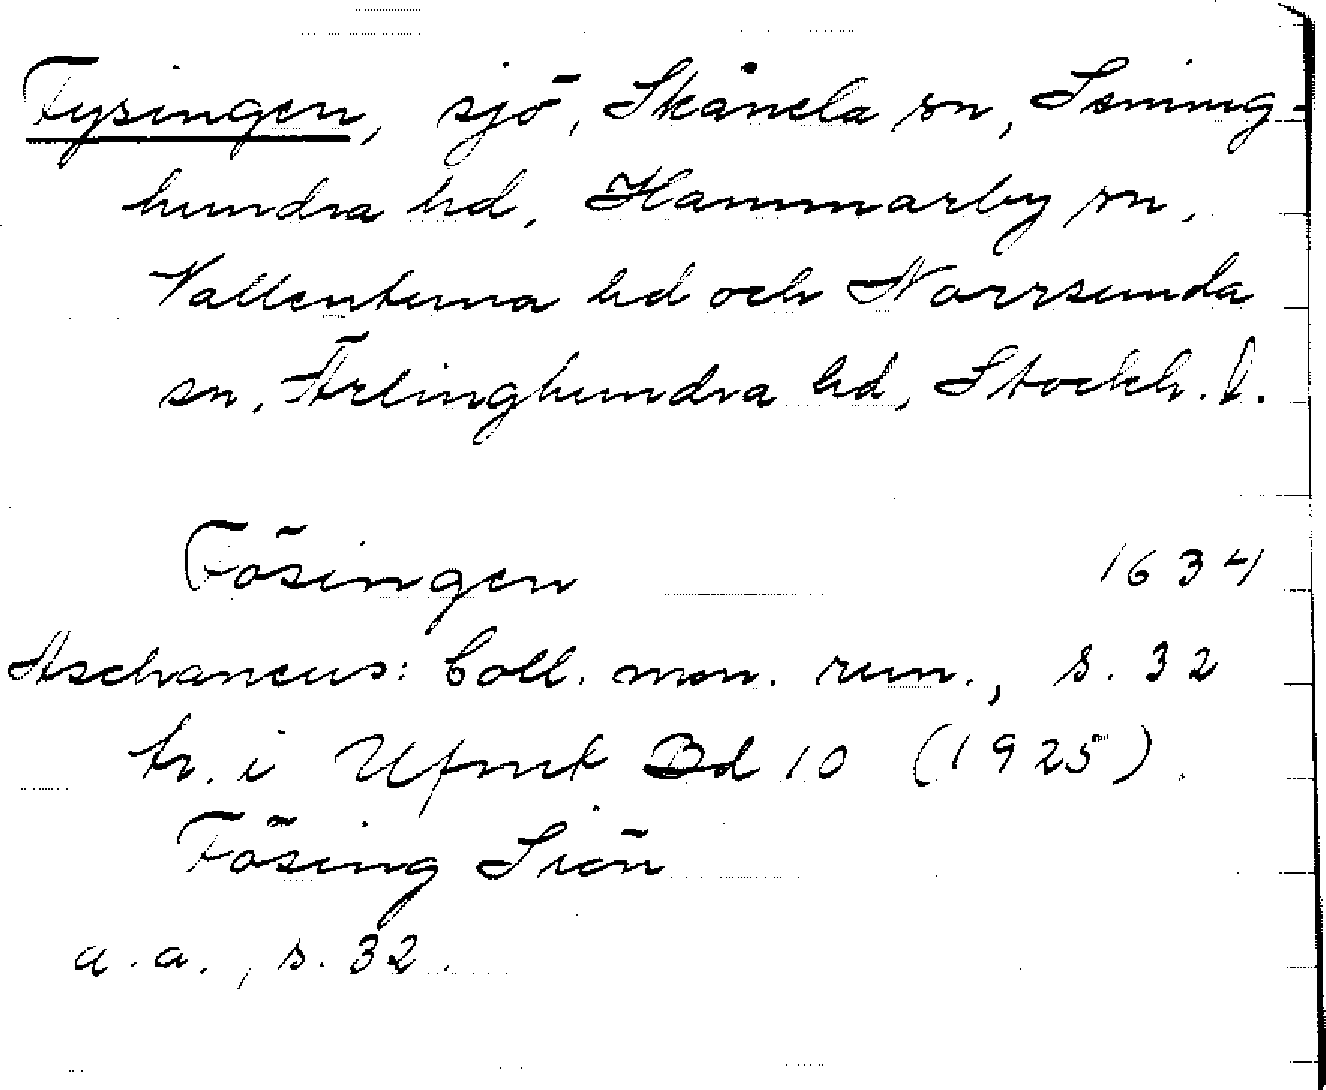 Fysingen, sjö, Skånela sn, Seming-
hundra hd, Hammarby sn,
Vallentuna hd och Norrsunda
sn, Ärlinghundra hd, Stockh. l.
Fösingen 1634
Aschaneus: Coll. mon. run., s. 32
tr. i Ufmt Bd 10 (1925).
Fösing Siön
a.a., s. 32.